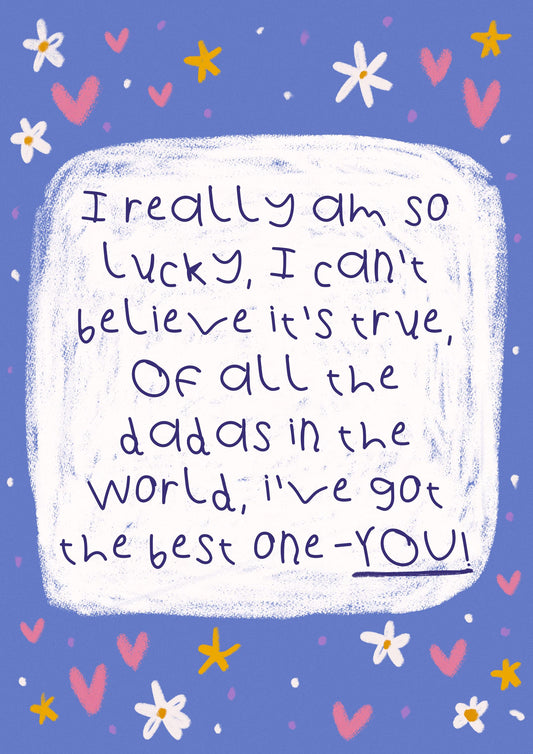 I really am so
lucky, I can't
believe it's true,
Of all the
dadas in the
world, i've got
the best one - YOU!